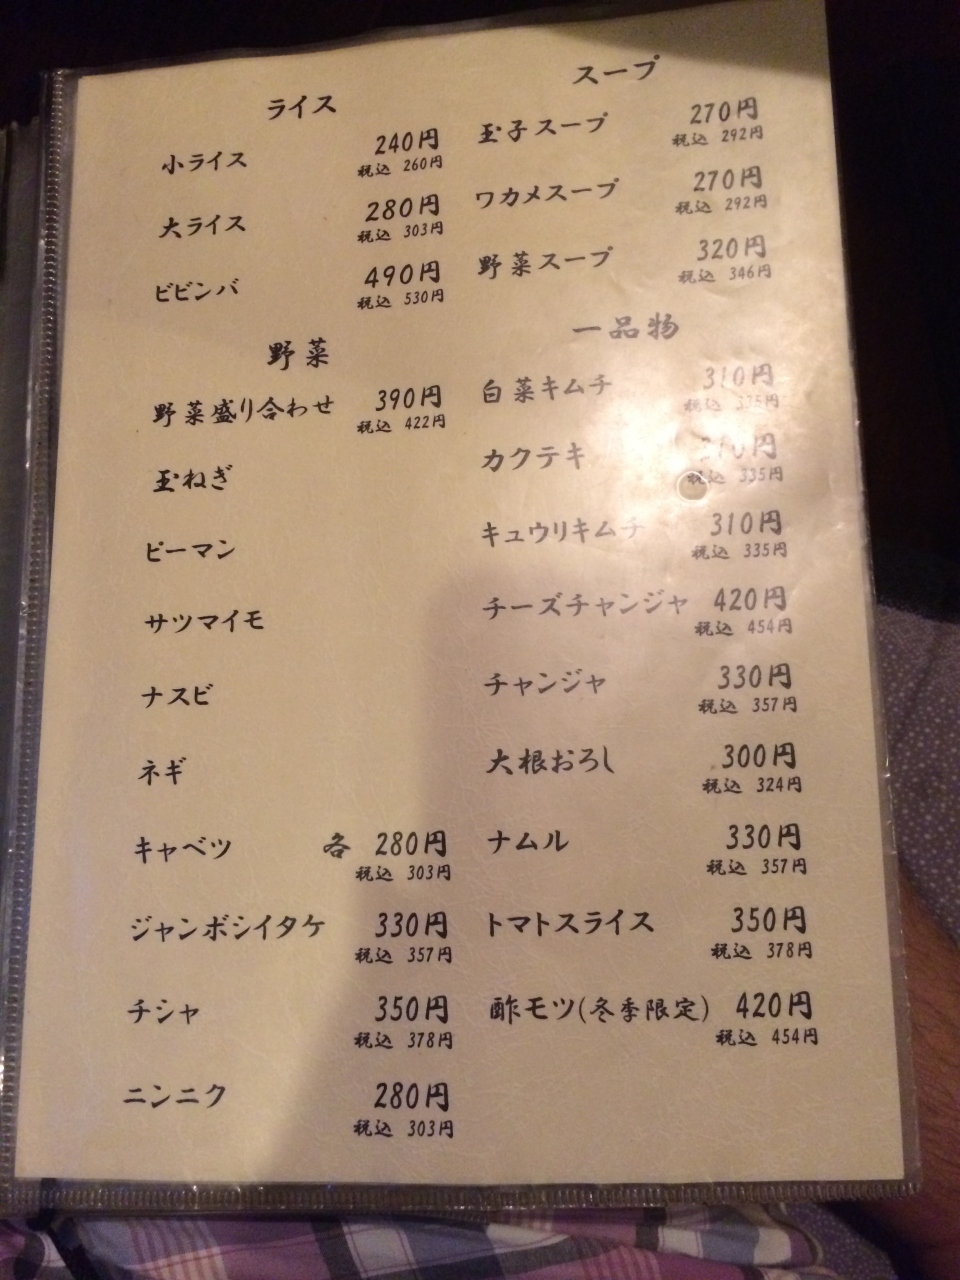 ライス
小ライス 240円
税込 260円
大ライス 280円
税込 303円
ビビンバ 490円
税込 530円
野菜
野菜盛り合わせ 390円
税込 422円
玉ねぎ
ピーマン
サツマイモ
ナスビ
ネギ
キャベツ 各 280円
税込 303円
ジャンボシイタケ 330円
税込 357円
チシャ 350円
税込 378円
ニンニク 280円
税込 303円
スープ
玉子スープ 270円
税込 292円
ワカメスープ 270円
税込 292円
野菜スープ 320円
税込 346円
一品物
白菜キムチ 310円
税込 335円
カクテキ 310円
税込 335円
キュウリキムチ 310円
税込 335円
チーズチャンジャ 420円
税込 454円
チャンジャ 330円
税込 357円
大根おろし 300円
税込 324円
ナムル 330円
税込 357円
トマトスライス 350円
税込 378円
酢モツ(冬季限定) 420円
税込 454円